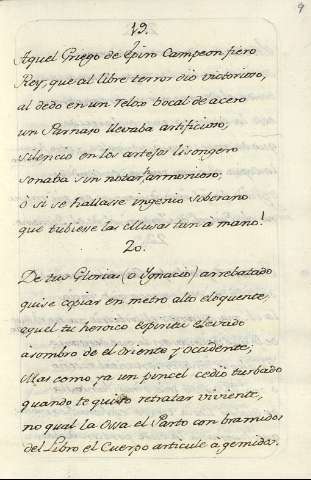 9
19.
Aquel Griego de Epiro Campeon fiero
Rey, que al libre terror dió victorioso,
al dedo en un Relox bocal de acero
un Parnaso llevaba artificioso;
silencio en los artejos lisongero
sonaba sin notar armonioso;
ó si se hallase ingenio soberano
que tubiesse las Musas tan à mano!
20.
De tus Glorias (ò Ygnacio) arrebatado
quise copiar en metro alto eloquente,
aquel tu heroico espiritu elevado
àsombro de el Oriente y occidente,
Mas como ya un pincel cediò turbado
quando te quiso retratar viviente,
no qual la Ossa el Parto con bramidos
del Libro el Cuerpo articule à gemidos.